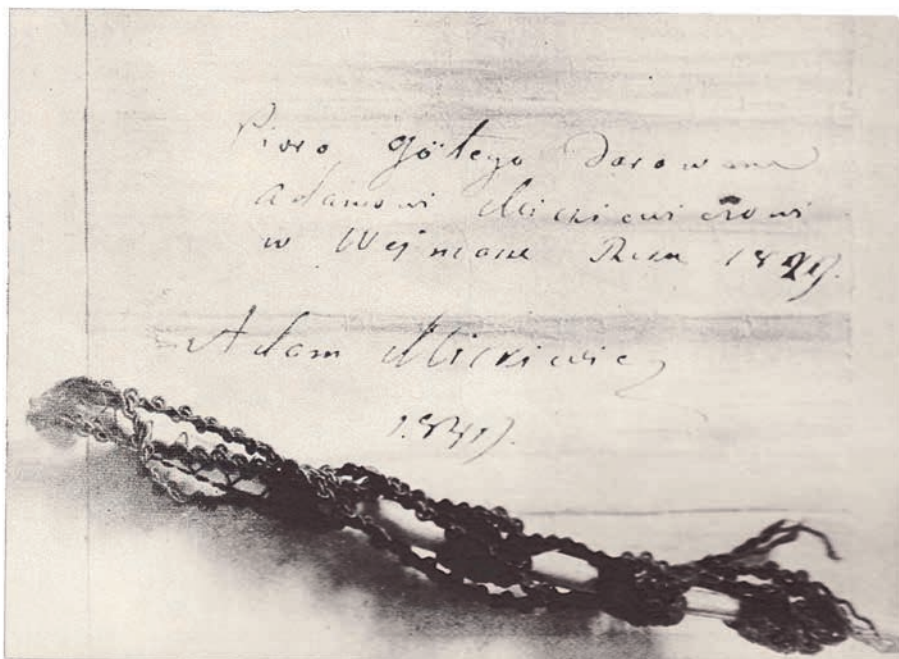 Pioro götego Darowane
Adamowi Mickiewiczowi
w Wejmarze Roku 1829.
Adam Mickiewicz